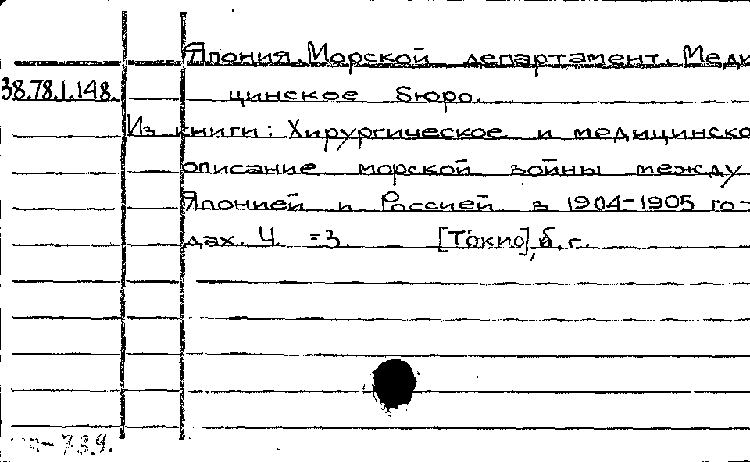 Япония. Морской департамент. Меди
38.78.1.148. цинское бюро.
Из книги: Хирургическое и медицинско
описание морской войны между
Японией и Россией в 1904-1905 го-
дах. Ч. =3 [Токио], б.г.
-739.